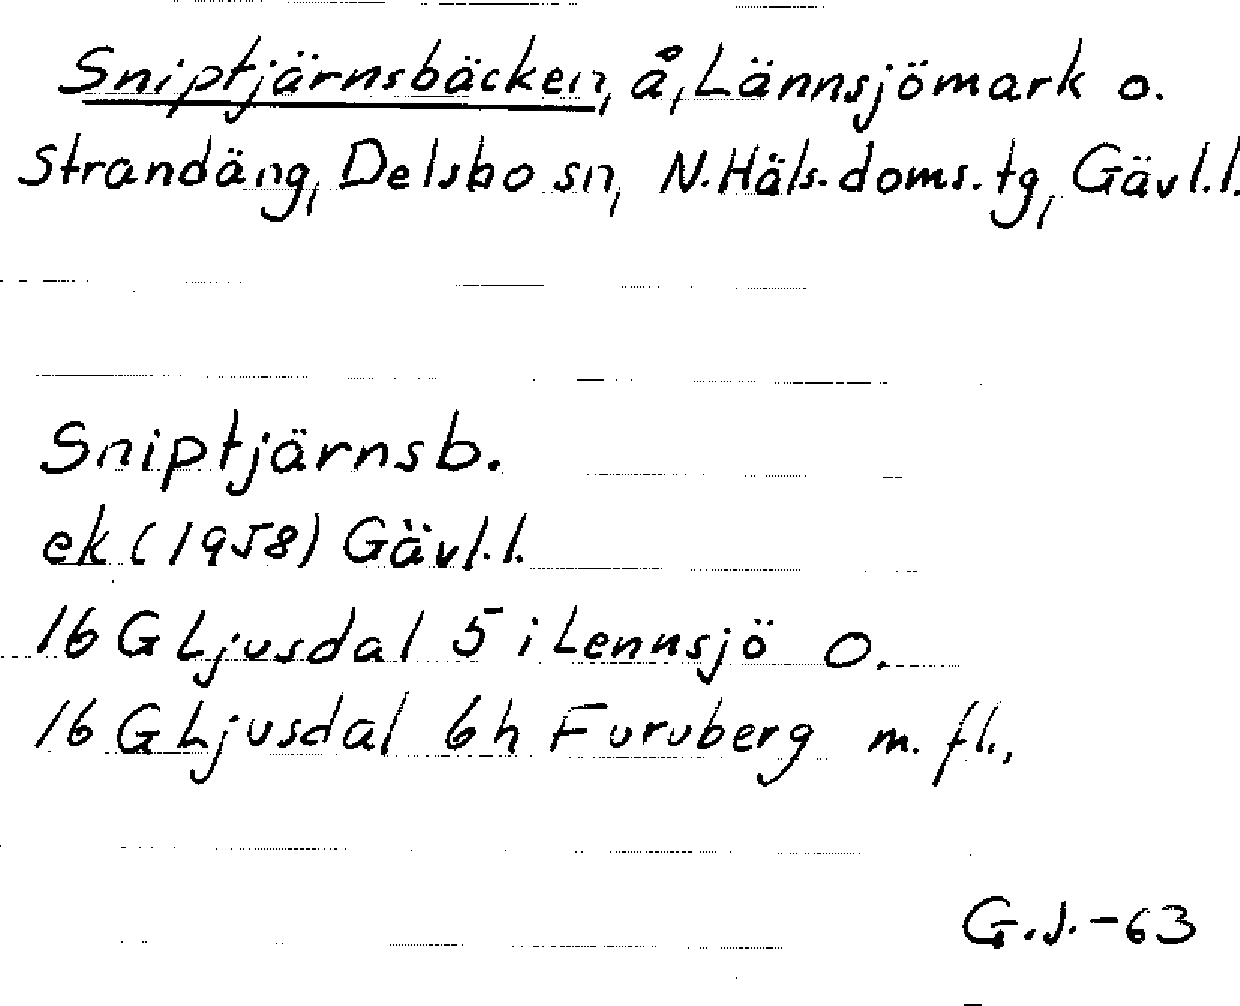 Sniptjärnsbäcken, å, Lännsjömark o.
Strandäng, Delsbo sn, N.Häls.doms.tg, Gävl.l.
Sniptjärnsb.
ek (1958) Gävl.l.
16 G Ljusdal 5 i Lennsjö O.
16 G Ljusdal 6h Furuberg m. fl.,
G.J.-63